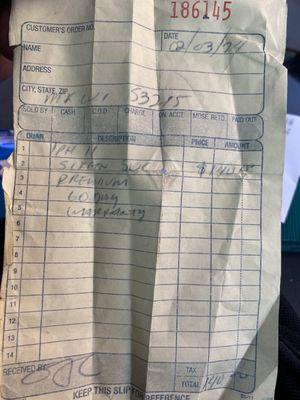 186145
CUSTOMER'S ORDER NO.
DATE
02/03/24
NAME
ADDRESS
CITY, STATE, ZIP
MK WI 53215
SOLD BY CASH C.O.D. CHARGE ON ACCT. MDSE. RETD. PAID OUT
QUAN. DESCRIPTION PRICE AMOUNT
1 IPH 11
2 SCREEN $140.00
3 PREMIUM
4 60 DAY
5 WARRANTY
6
7
8
9
10
11
12
13
14
TAX
RECEIVED BY
TOTAL 140.00
KEEP THIS SLIP FOR REFERENCE